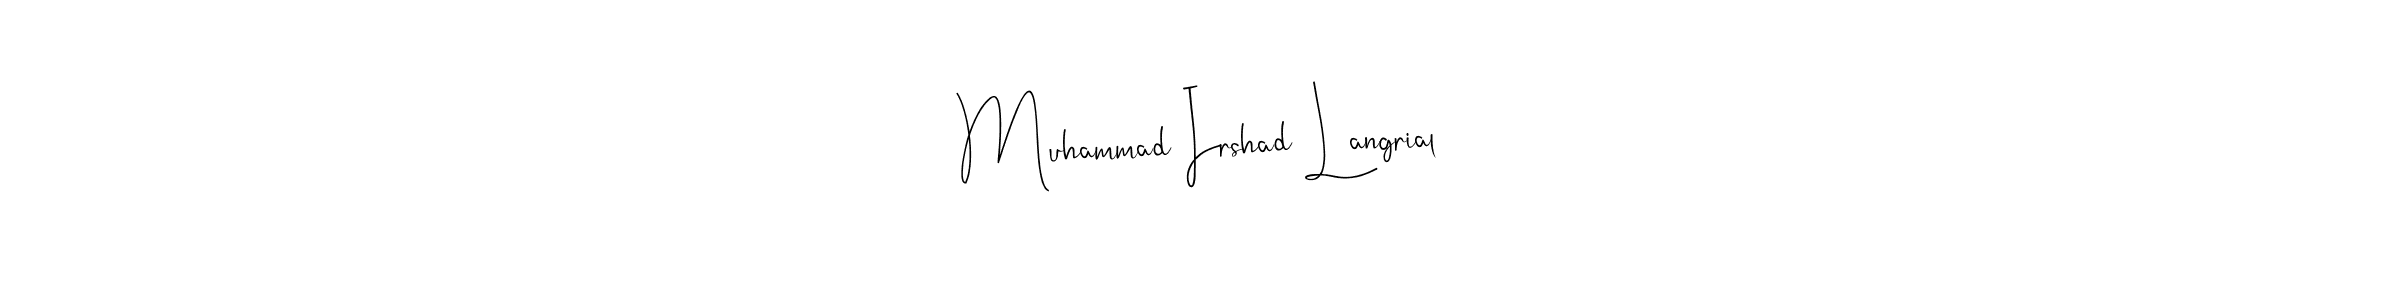 Muhammad Irshad Langrial